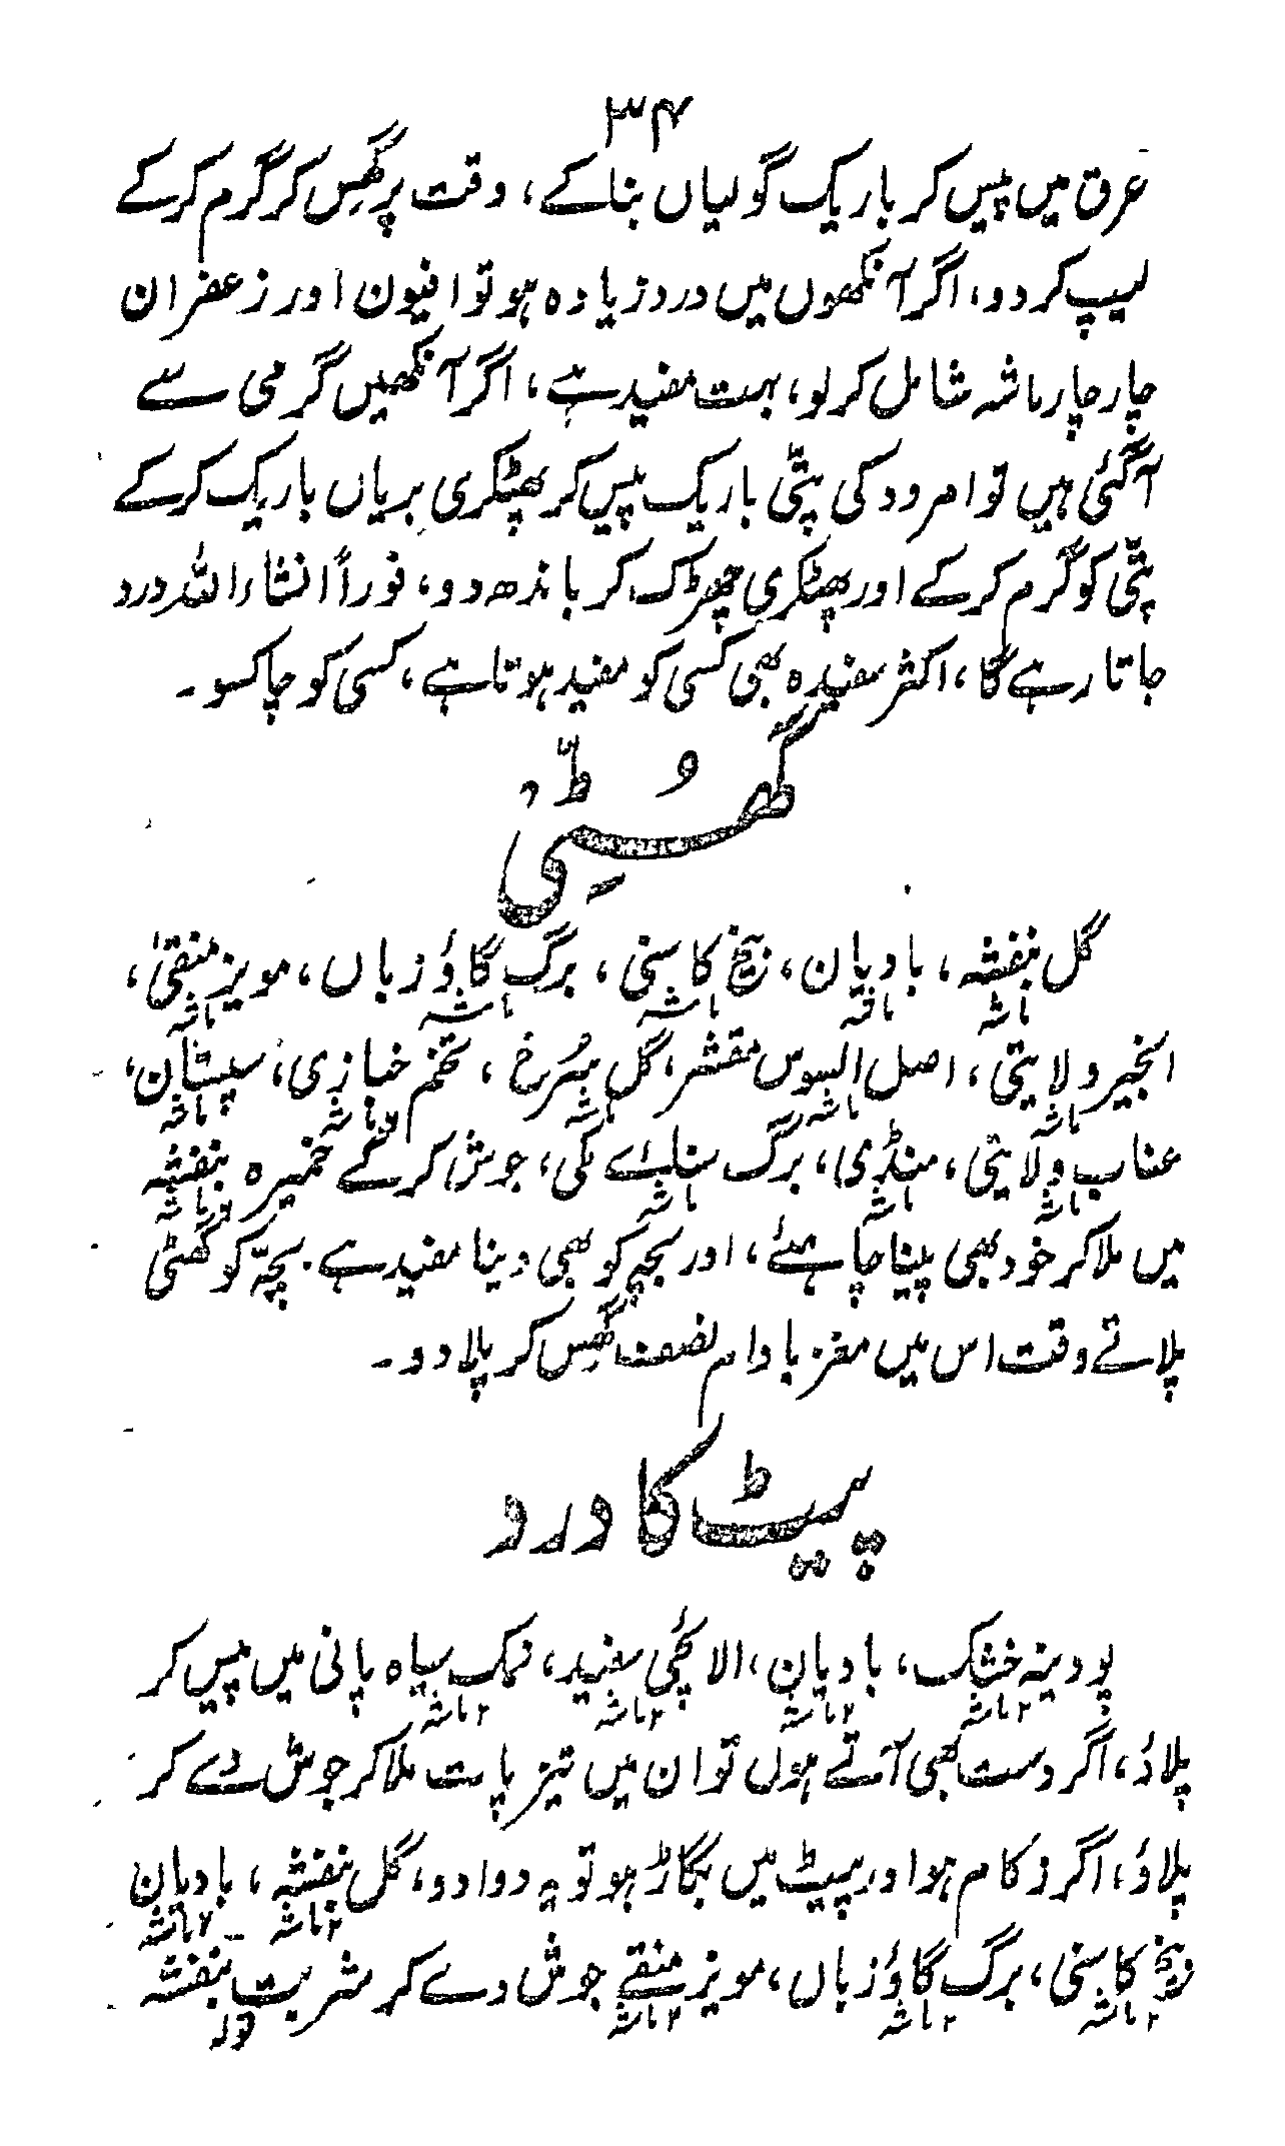 ۳۴
عرق میں پیس کر باریک گولیاں بنا کے، وقت پر گھِس کر گرم کرکے
لیپ کر دو، اگر آنکھوں میں درد زیادہ ہو تو افیون اور زعفران
چار چار ماشہ شامل کر لو، بہت مفید ہے، اگر آنکھیں گرمی سے
آگئی ہیں تو امرود کی پتّی باریک پیس کر پھٹکری بریاں باریک کرکے
پتّی کو گرم کرکے اور پھٹکری چھڑک کر باندھ دو، فوراً انشاء اللہ درد
جاتا رہے گا، اکثر سفیدہ بھی کسی کو مفید ہوتا ہے، کسی کو چاکسو۔
گھُٹّی
گل بنفشہ، بادیان، بیخ کاسنی، برگ گاؤزباں، مویز منقیٰ،
ماشہ ماشہ ماشہ ماشہ
انجیر ولایتی، اصل السوس مقشر، گل سُرخ، تخم خبازی، سپستان،
ماشہ ماشہ ماشہ ماشہ
عناب ولایتی، منڈی، برگ سنائے مکی، جوش کرکے خمیرہ بنفشہ
ماشہ ماشہ ماشہ
میں ملا کر خود بھی پینا چاہئے، اور بچہ کو بھی دینا مفید ہے۔ بچّہ کو گھٹی
پلاتے وقت اس میں مغز بادام نصف گھِس کر پلا دو۔
پیٹ کا درد
پودینہ خشک، بادیان، الائچی سفید، نمک سیاہ پانی میں پیس کر
۲ماشہ ۲ماشہ ۲ماشہ ۲ماشہ
پلاؤ، اگر دست بھی آتے ہوں تو ان میں تیز پات ملا کر جوش دے کر
پلاؤ، اگر زکام ہو اور پیٹ میں بگاڑ ہو تو یہ دوا دو، گل بنفشہ، بادیان
بیخ کاسنی، برگ گاؤزباں، مویز منقے جوش دے کر شربت بنفشہ
۲ماشہ ۲ماشہ ۲ماشہ